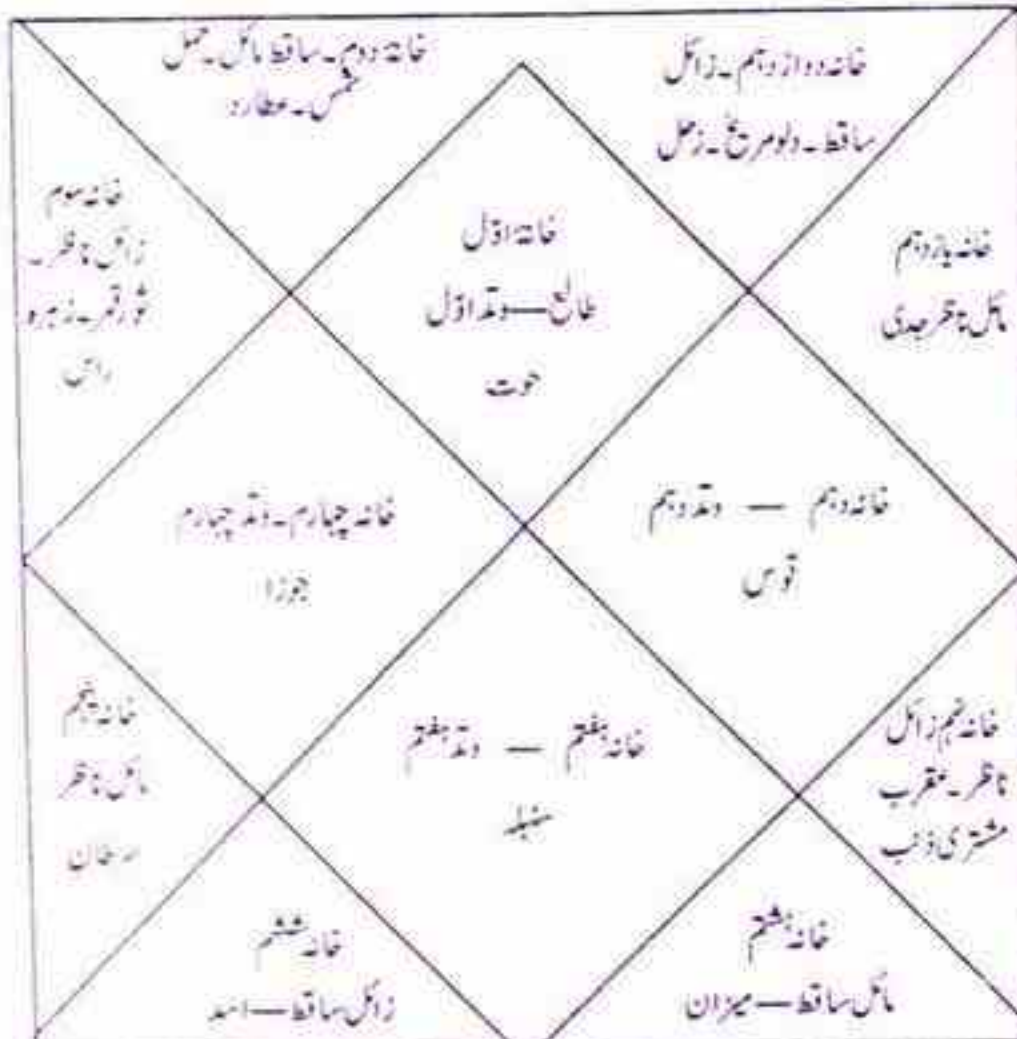 خانۂ دوم۔ ساقط مائل۔ حمل
شمس۔ عطارد
خانہ دوازدہم۔ زائل
ساقط۔ دلو مریخ۔ زحل
خانہ سوم
زائل ناظر۔
ثور قمر۔ زہرہ
راس
خانۂ اوّل
طالع — وتد اوّل
حوت
خانہ یازدہم
مائل ناظر جدی
خانہ چہارم۔ وتد چہارم
جوزا
خانہ دہم — وتد دہم
قوس
خانہ پنجم
مائل ناظر
سرطان
خانہ ہفتم — وتد ہفتم
سنبلہ
خانہ نہم زائل
ناظر۔ عقرب
مشتری ذنب
خانہ ششم
زائل ساقط — اسد
خانہ ہشتم
مائل ساقط — میزان